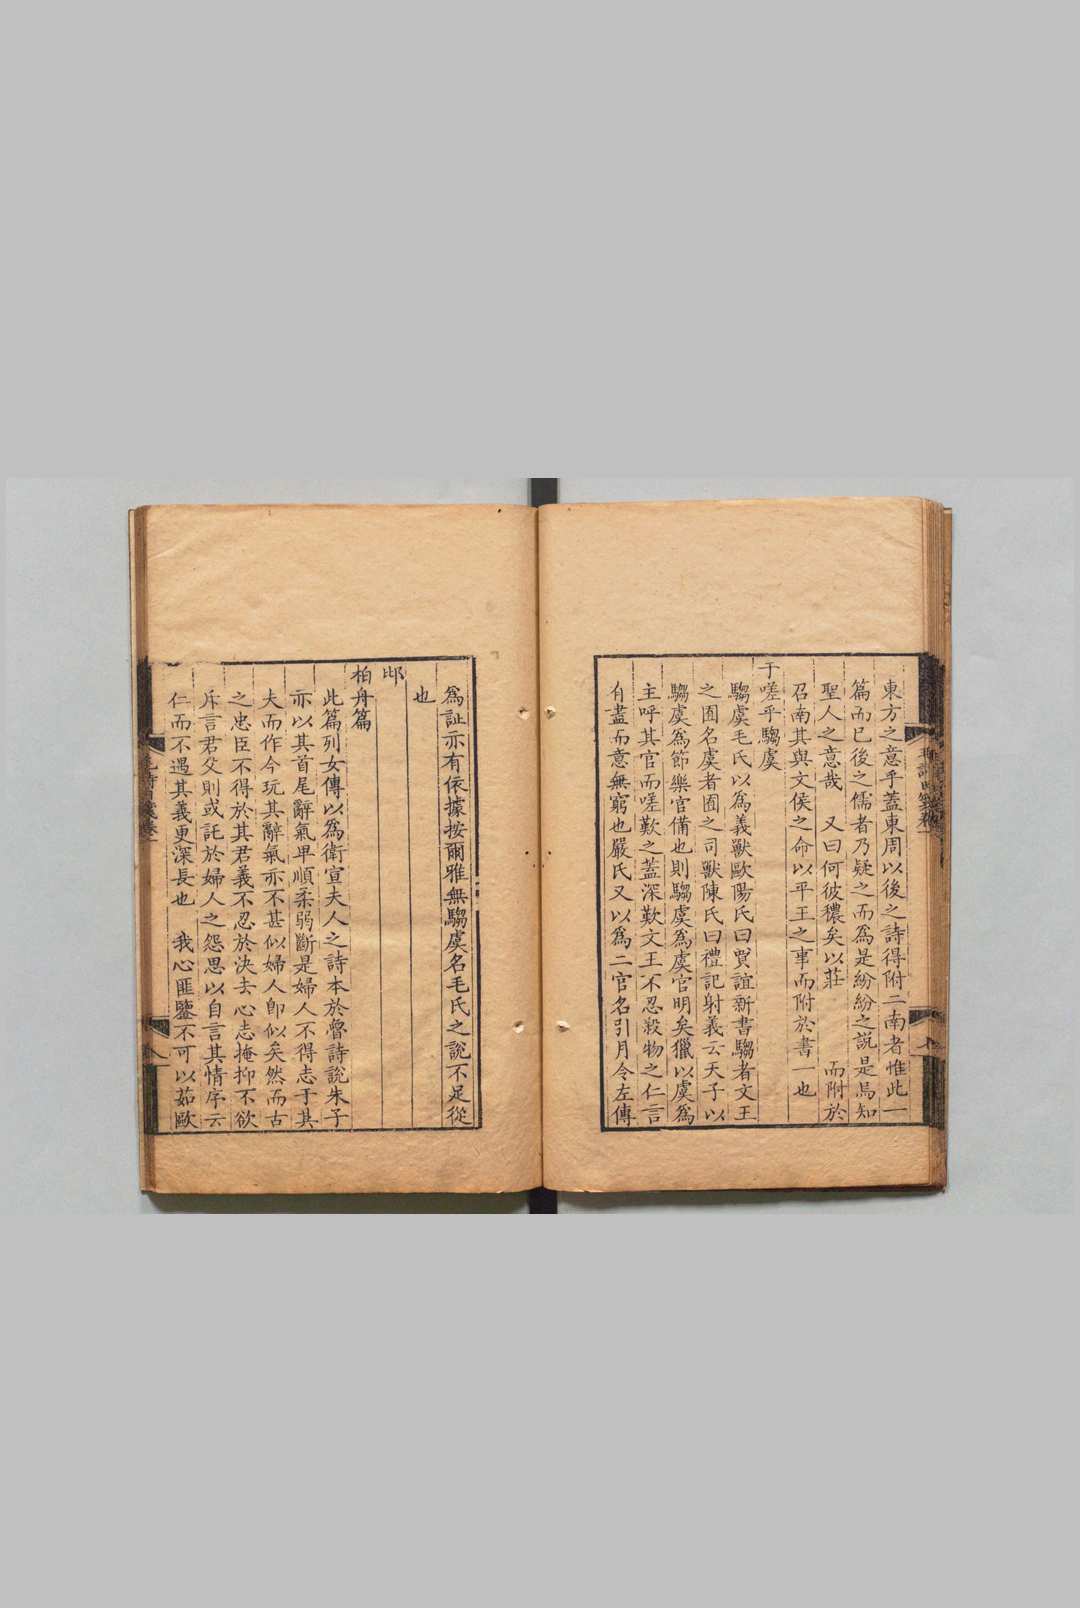 東方之意乎蓋東周以後之詩得附二南者惟此一
篇而已後之儒者乃疑之而為是紛紛之説是烏知
聖人之意哉　又曰何彼穠矣以莊　而附於
召南其與文侯之命以平王之事而附於書一也
于嗟乎騶虞
騶虞毛氏以為義獸歐陽氏曰賈誼新書騶者文王
之囿名虞者囿之司獸陳氏曰禮記射義云天子以
騶虞為節樂官備也則騶虞為虞官明矣獵以虞為
主呼其官而嗟歎之蓋深歎文王不忍殺物之仁言
有盡而意無窮也嚴氏又以為二官名引月令左傳
為証亦有依據按爾雅無騶虞名毛氏之說不足從
也
邶
柏舟篇
此篇列女傳以為衛宣夫人之詩本於魯詩說朱子
亦以其首尾辭氣卑順柔弱斷是婦人不得志于其
夫而作今玩其辭氣亦不甚似婦人即似矣然而古
之忠臣不得於其君義不忍於決去心志掩抑不欲
斥言君父則或託於婦人之怨思以自言其情序云
仁而不遇其義更深長也　我心匪鑒不可以茹歐